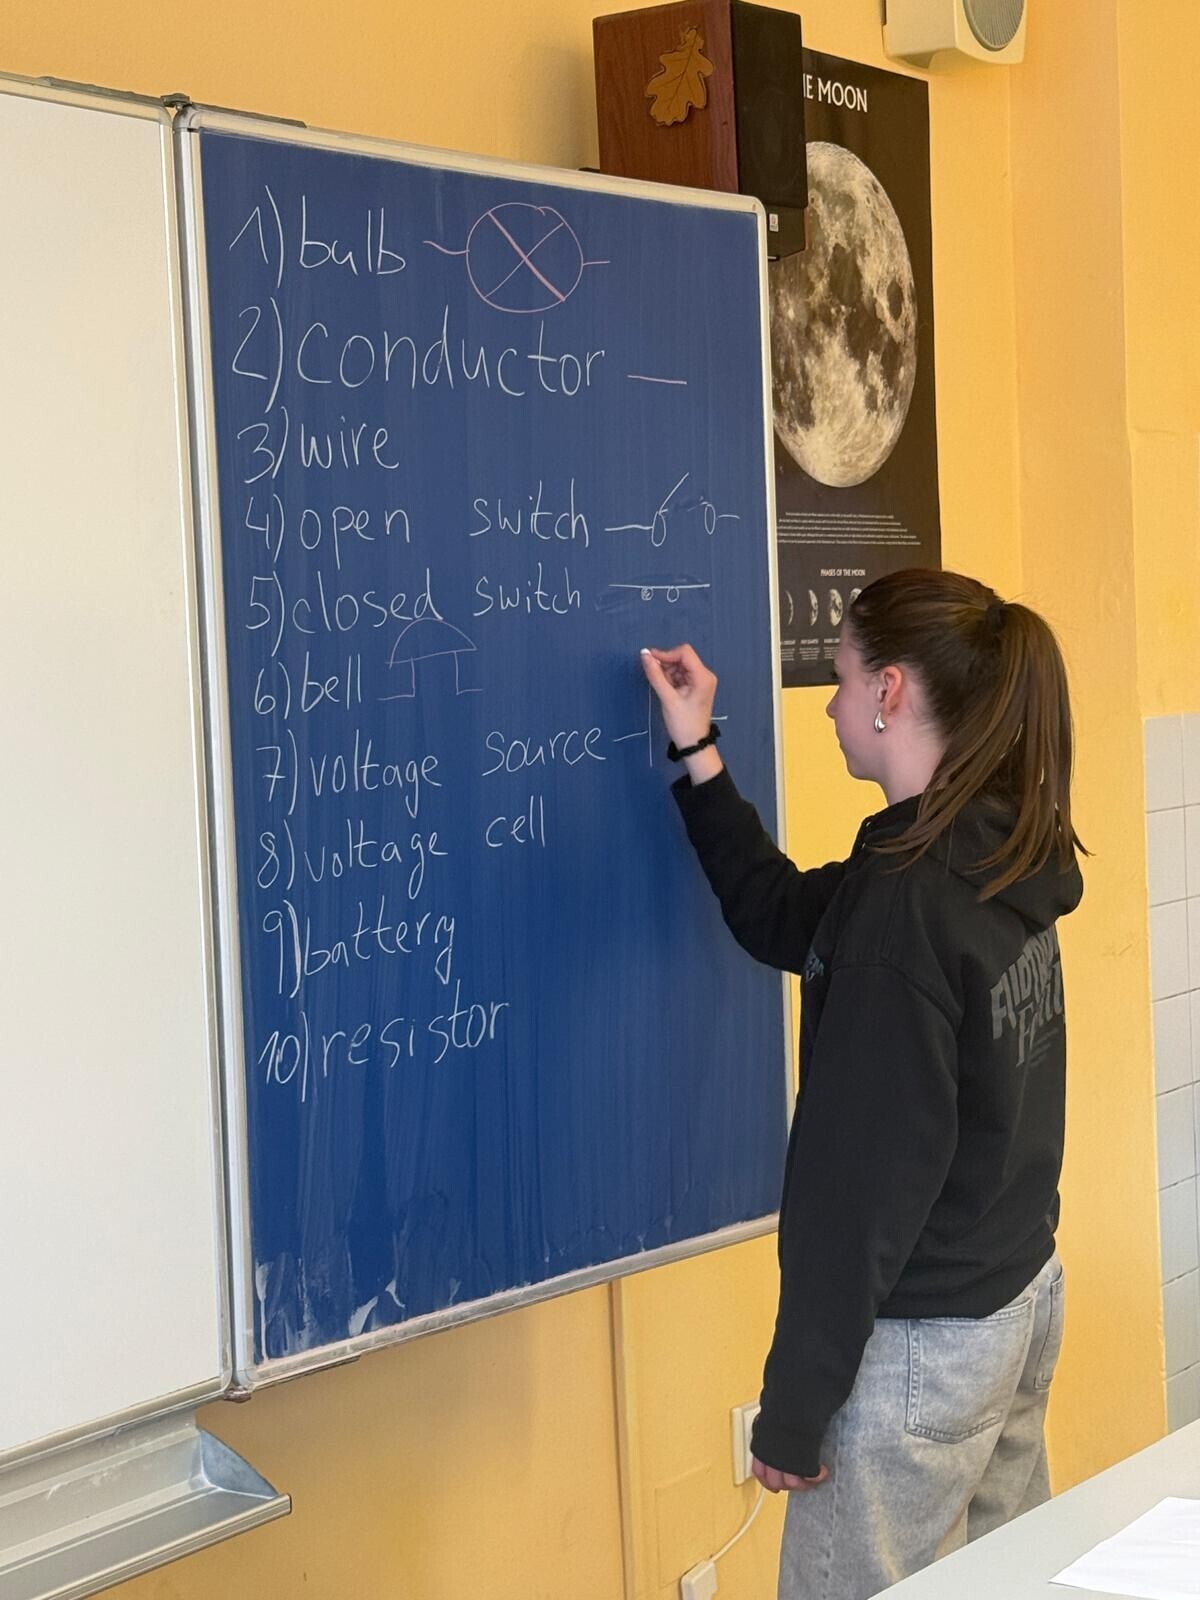 THE MOON
1) bulb
2) conductor
3) wire
4) open switch
5) closed switch
6) bell
7) voltage source
8) voltage cell
9) battery
10) resistor
PHASES OF THE MOON